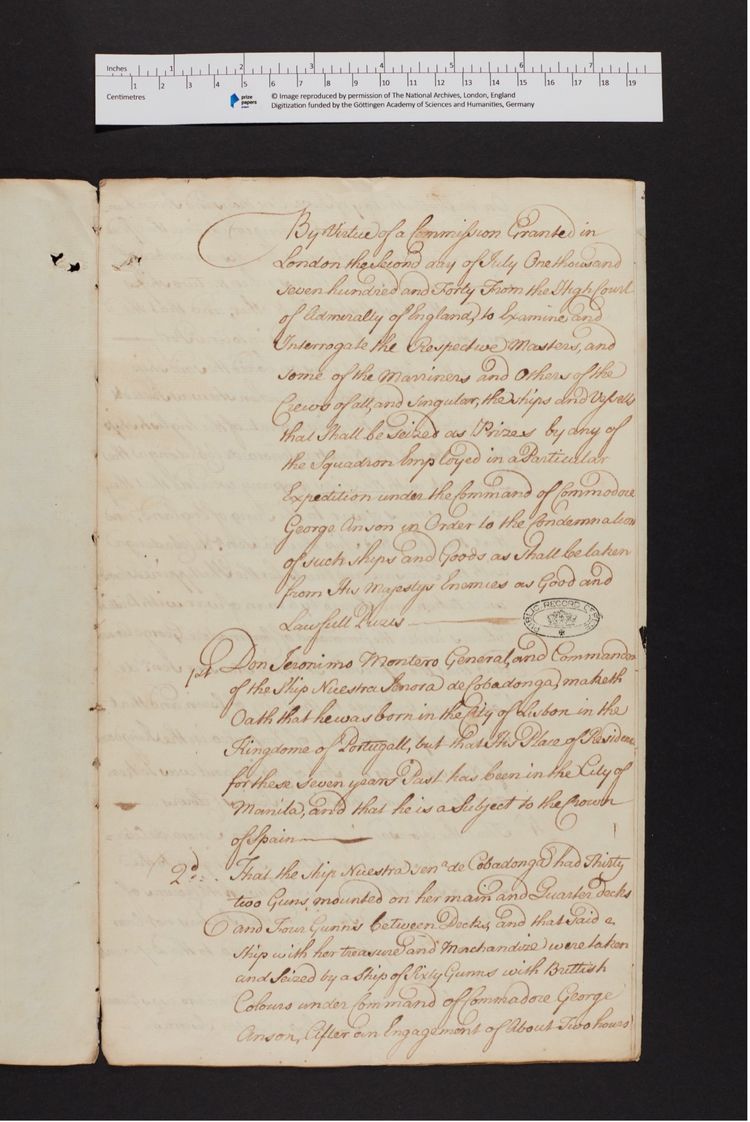 Inches 1 2 3 4 5 6 7
1 2 3 4 5 6 7 8 9 10 11 12 13 14 15 16 17 18 19
Centimetres
prize papers
© Image reproduced by permission of The National Archives, London, England
Digitization funded by the Göttingen Academy of Sciences and Humanities, Germany
By Virtue of a Commission Granted in
London the Second day of July One thousand
Seven hundred and Forty From the High Court
of Admiralty of England, to Examine and
Interrogate the Respective Masters, and
some of the Marriners and Others of the
Crews of all, and Singular, the Ships and Vessells
that Shall be Seized as Prizes by any of
the Squadron Employed in a Particular
Expedition under the Command of Commodore
George Anson in Order to the Condemnation
of such Ships and Goods as Shall be taken
from His Majestys Enemies as Good and
Lawfull Prizes
PUBLIC RECORD OFFICE
1st Don Jeronimo Montero General, and Commander
of the Ship Nuestra Senora de Cobadonga, maketh
Oath that he was born in the City of Lisbon in the
Kingdome of Portugall, but that His Place of Residence
for these seven years Past has been in the City of
Manila, and that he is a Subject to the Crown
of Spain
2d: That the Ship Nuestra Sena de Cobadonga had Thirty
two Guns, mounted on her main and Quarter decks
and Four Gunns between Decks, and that said
Ship with her treasure and Merchandize were taken
and Seized by a Ship of Sixty Gunns with Brittish
Colours under Command of Commodore George
Anson, After an Engagement of About Two hours